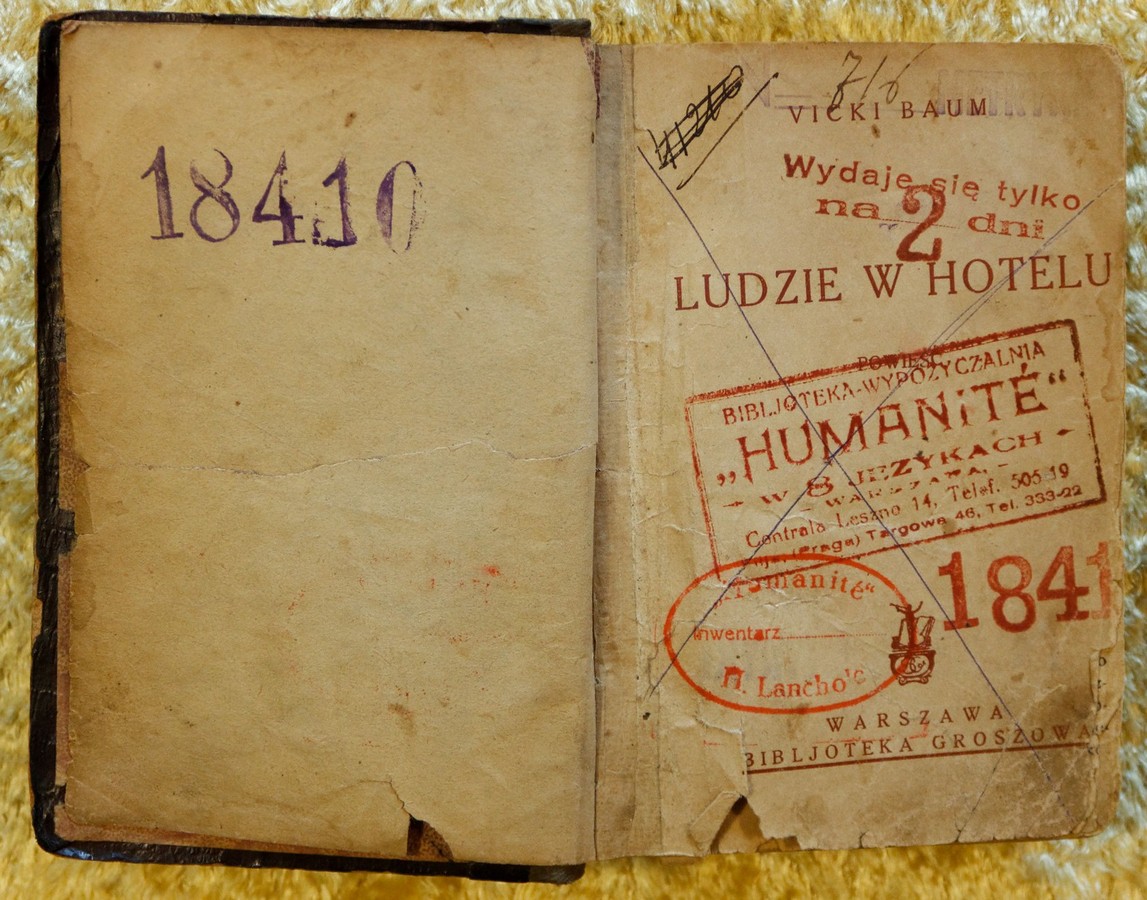 18410
716
VICKI BAUM
Wydaje się tylko
na 2 dni
LUDZIE W HOTELU
POWIEŚĆ
BIBLJOTEKA-WYPOŻYCZALNIA
„HUMANITÉ“
W 8 JĘZYKACH
WARSZAWA,
Centrala Leszno 14, Telef. 505-19
(Praga) Targowa 46, Tel. 333-22
1841
„Humanité“
Inwentarz
WARSZAWA
BIBLJOTEKA GROSZOWA